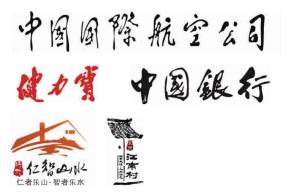 中國國際航空公司
健力寶
中國銀行
仁智山水
仁者乐山·智者乐水
江南村